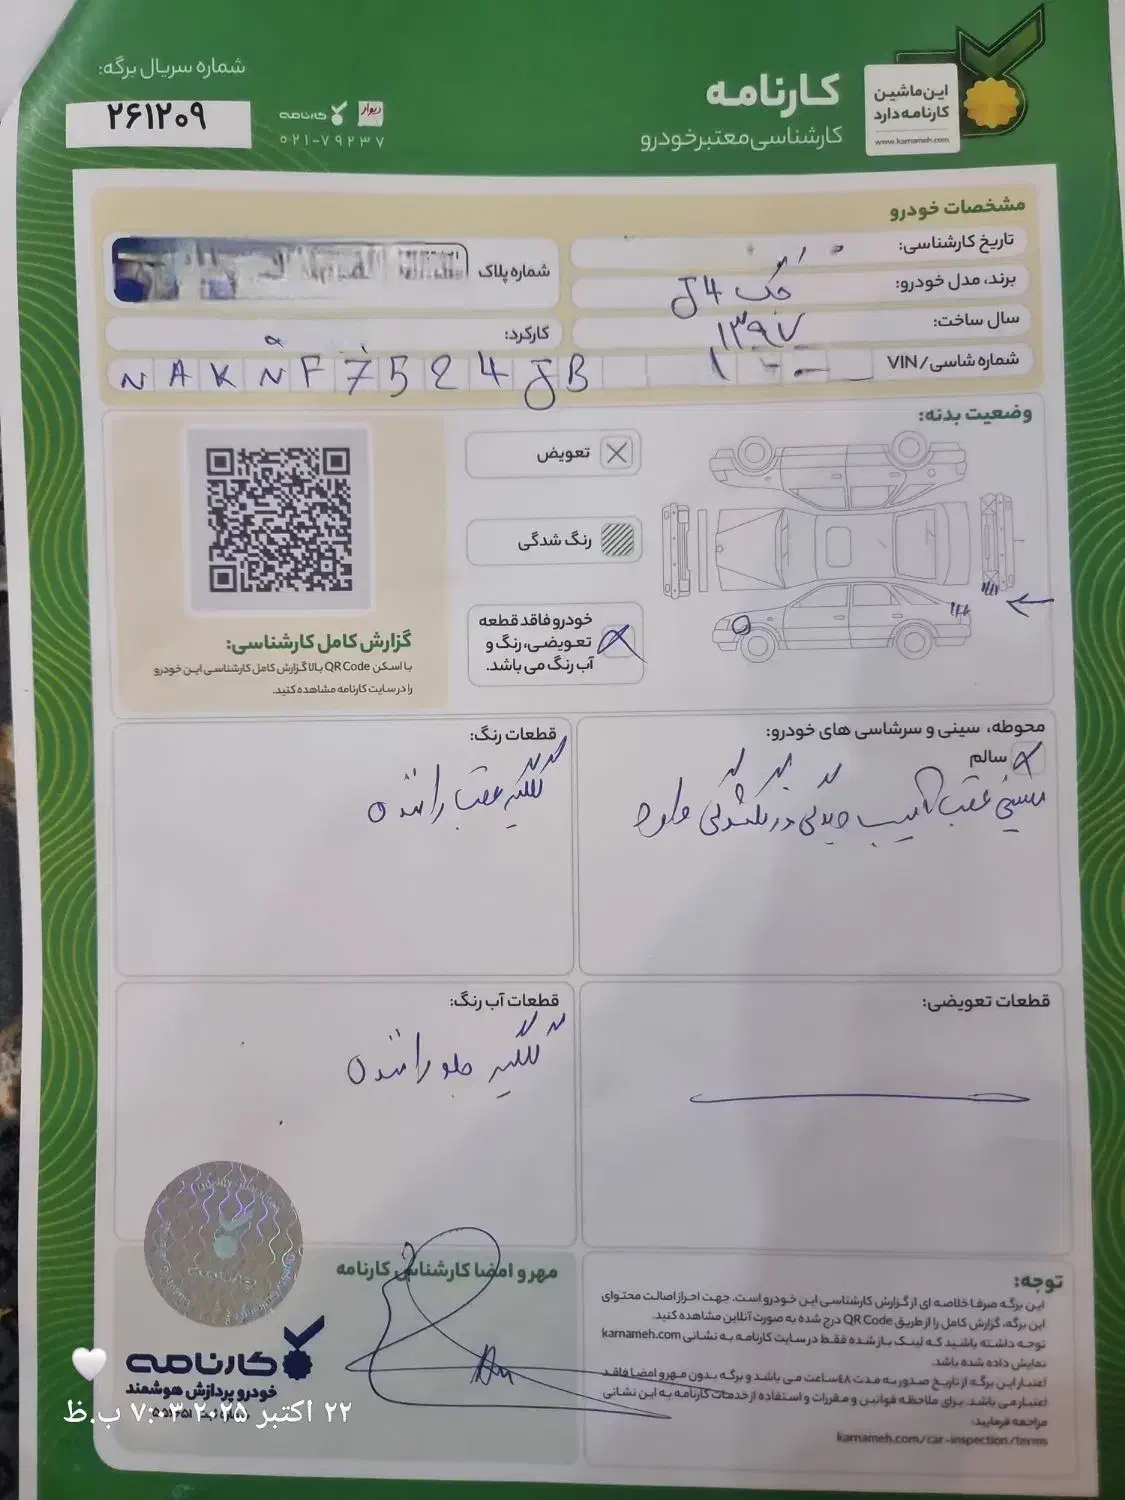 شماره سریال برگه:
۲۶۱۲۰۹
دیوار کارنامه
۰۲۱-۷۹۲۳۷
کارنامه
کارشناسی معتبر خودرو
این ماشین
کارنامه دارد
www.karnameh.com
مشخصات خودرو
تاریخ کارشناسی:
شماره پلاک
برند، مدل خودرو: جک J4
سال ساخت: ۱۳۹۷
کارکرد:
شماره شاسی/VIN
N A K N F 7 5 2 4 J B
وضعیت بدنه:
تعویض
رنگ شدگی
خودرو فاقد قطعه
تعویضی، رنگ و
آب رنگ می باشد.
گزارش کامل کارشناسی:
با اسکن QR Code بالا گزارش کامل کارشناسی این خودرو
را در سایت کارنامه مشاهده کنید.
محوطه، سینی و سرشاسی های خودرو:
سالم
سینی عقب آسیب دیدگی در رنگشدگی دارد
قطعات رنگ:
گلگیر عقب راننده
قطعات تعویضی:
قطعات آب رنگ:
گلگیر جلو راننده
مهر و امضا کارشناس کارنامه
کارنامه
خودرو پردازش هوشمند
توجه:
این برگه صرفا خلاصه ای از گزارش کارشناسی این خودرو است. جهت احراز اصالت محتوای
این برگه، گزارش کامل را از طریق QR Code درج شده به صورت آنلاین مشاهده کنید.
توجه داشته باشید که لینک باز شده فقط در سایت کارنامه به نشانی karnameh.com
نمایش داده شده باشد.
اعتبار این برگه از تاریخ صدور به مدت ۴۸ ساعت می باشد و برگه بدون مهر و امضا فاقد
اعتبار می باشد. برای ملاحظه قوانین و مقررات و استفاده از خدمات کارنامه به این نشانی
مراجعه فرمایید:
karnameh.com/car-inspection/terms
۲۲ اکتبر ۲۰۲۵ ۷:۰۳ ب.ظ